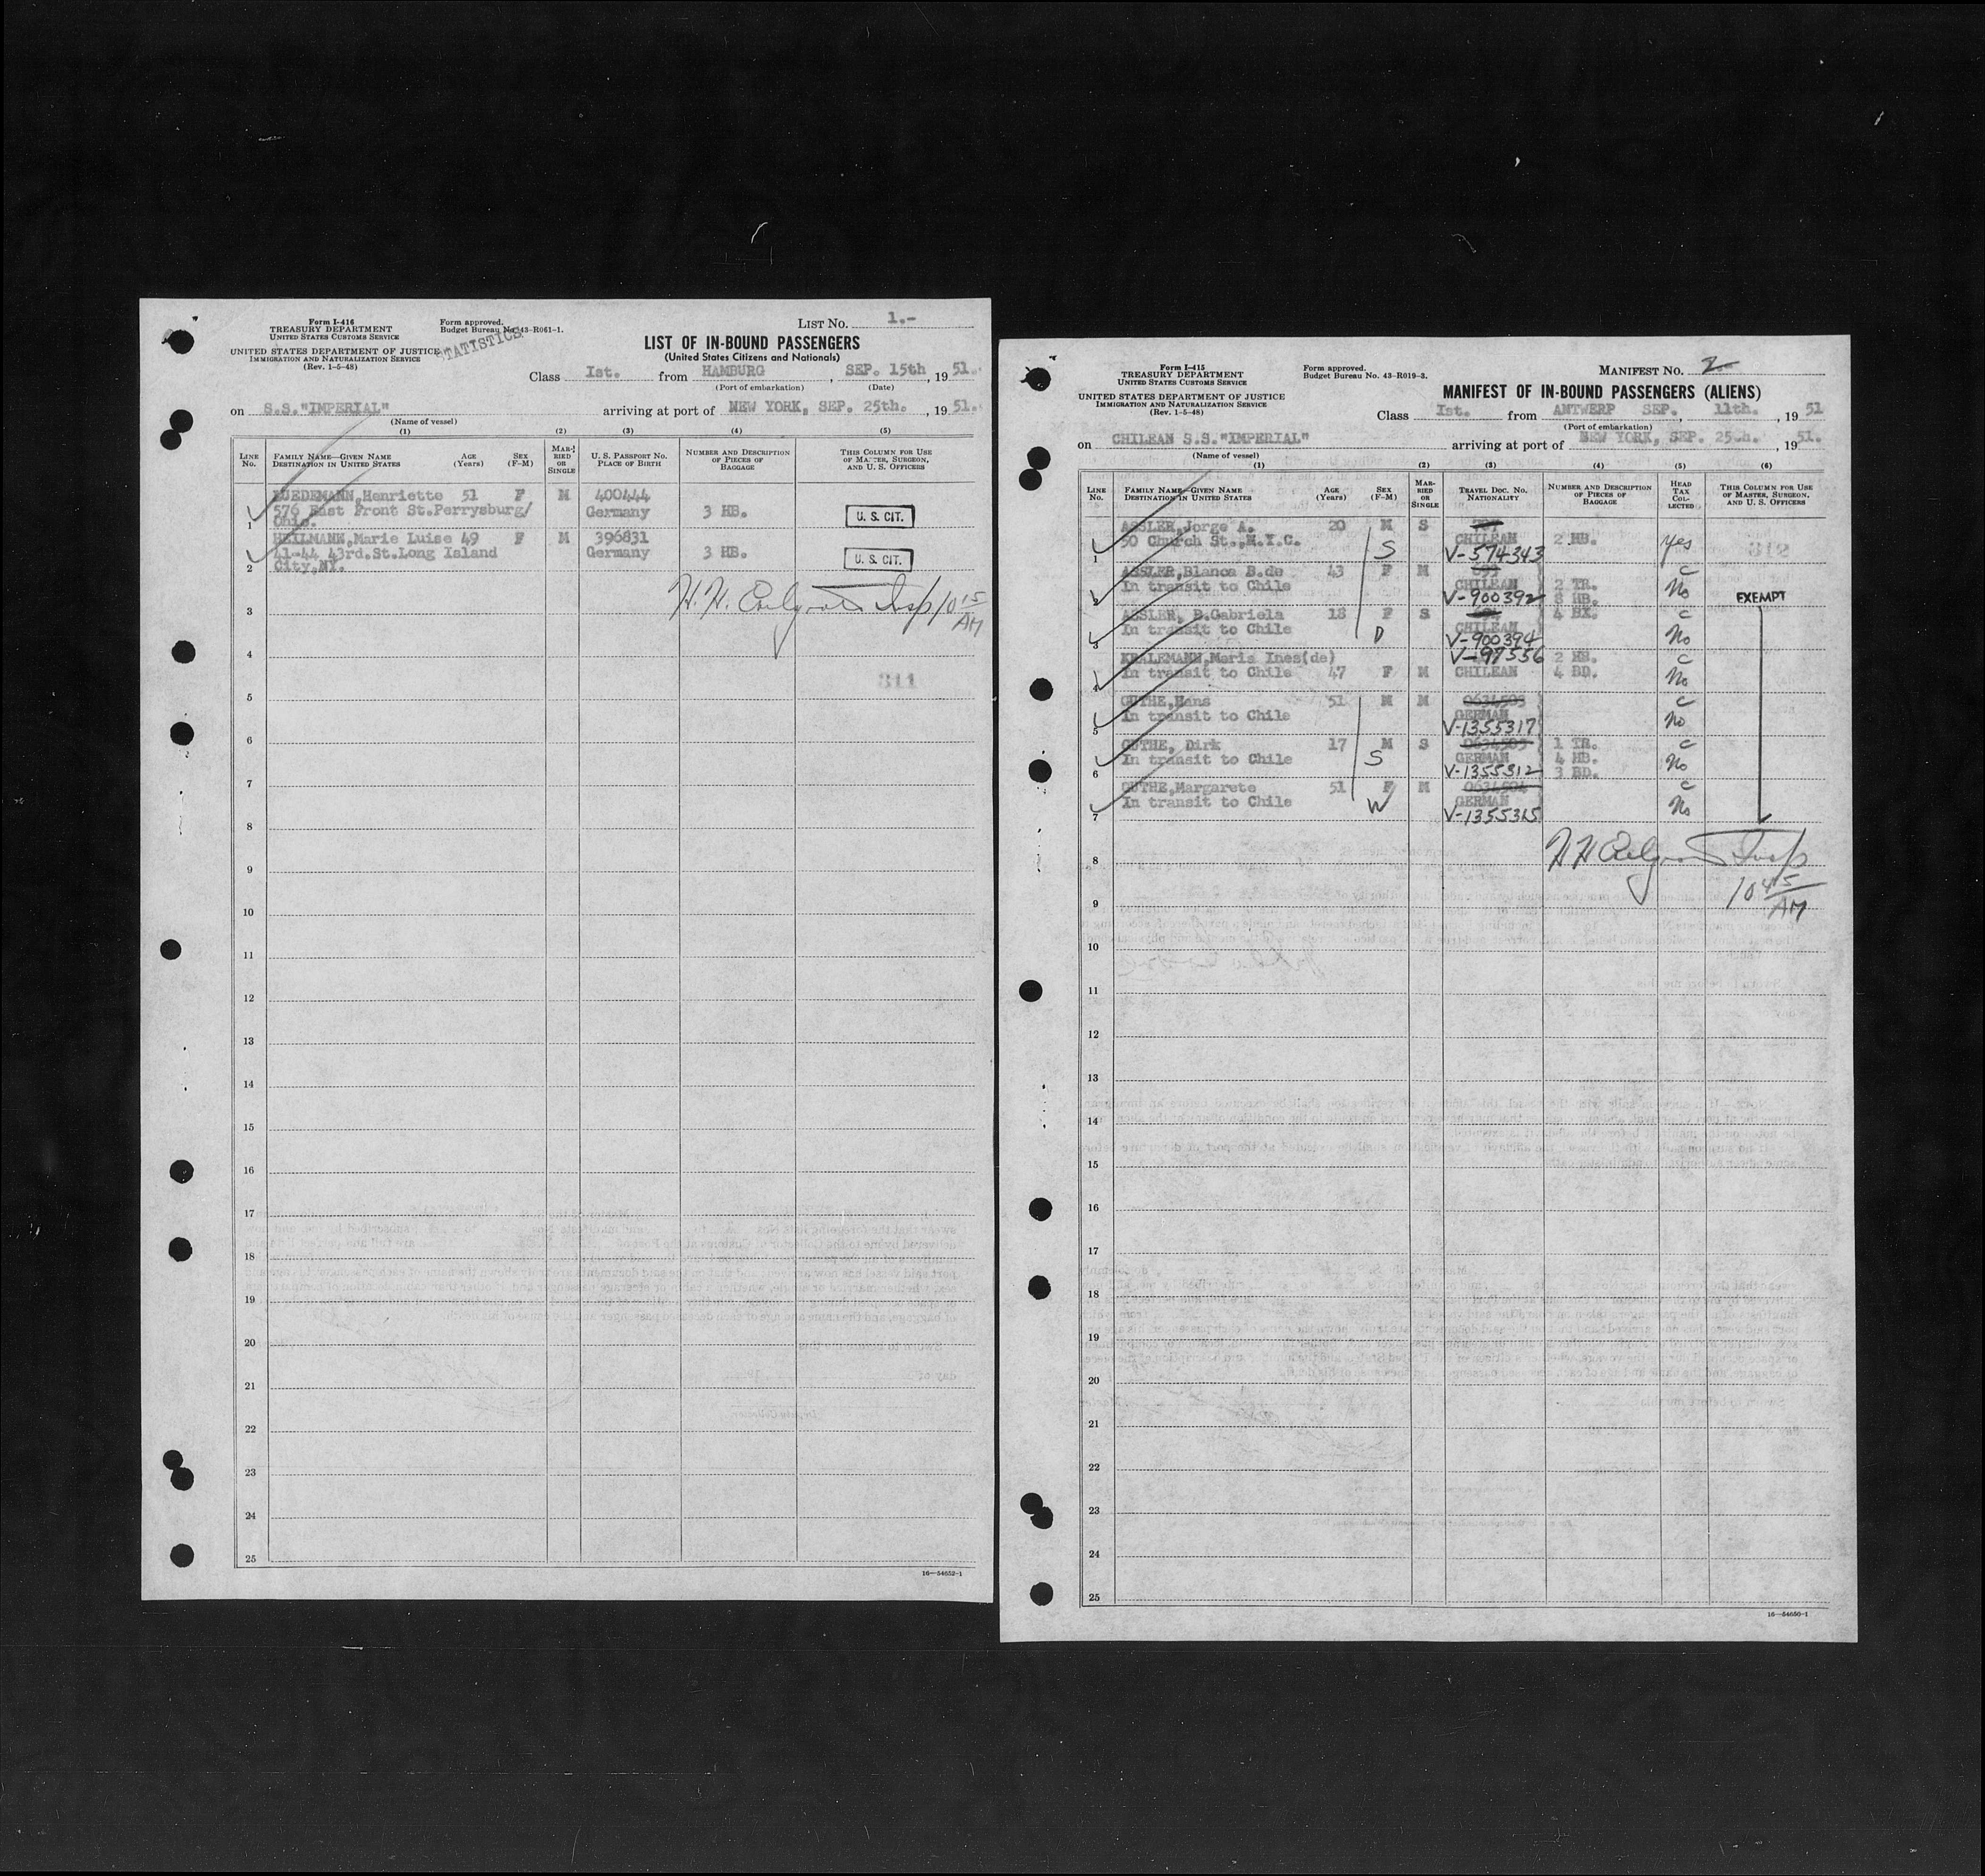 Form I-416
TREASURY DEPARTMENT
UNITED STATES CUSTOMS SERVICE
UNITED STATES DEPARTMENT OF JUSTICE
IMMIGRATION AND NATURALIZATION SERVICE
(Rev. 1-5-48)
Form approved.
Budget Bureau No. 43-R061-1.
STATISTICS
LIST NO. 1.-
LIST OF IN-BOUND PASSENGERS
(United States Citizens and Nationals)
Class Ist. from HAMBURG, SEP. 15th, 1951.
(Port of embarkation) (Date)
on S.S."IMPERIAL" arriving at port of NEW YORK, SEP. 25th., 1951.
(Name of vessel)
(1) (2) (3) (4) (5)
LINE NO. FAMILY NAME—GIVEN NAME DESTINATION IN UNITED STATES AGE (Years) SEX (F-M) MARRIED OR SINGLE U. S. PASSPORT NO. PLACE OF BIRTH NUMBER AND DESCRIPTION OF PIECES OF BAGGAGE THIS COLUMN FOR USE OF MASTER, SURGEON, AND U. S. OFFICERS
Henriette 51 F M 400444
576 East Front St.Perrysburg/ Germany 3 HB. U. S. CIT.
1 Ohio.
HEILMANN,Marie Luise 49 F M 396831
41-44 43rd.St.Long Island Germany 3 HB. U. S. CIT.
2 City,NY.
Insp 10 15 AM
3
4
311
5
6
7
8
9
10
11
12
13
14
15
16
17
18
19
20
21
22
23
24
25
16—54652-1
Form I-415
TREASURY DEPARTMENT
UNITED STATES CUSTOMS SERVICE
UNITED STATES DEPARTMENT OF JUSTICE
IMMIGRATION AND NATURALIZATION SERVICE
(Rev. 1-5-48)
Form approved.
Budget Bureau No. 43-R019-3.
MANIFEST NO. 2
MANIFEST OF IN-BOUND PASSENGERS (ALIENS)
Class Ist. from ANTWERP SEP., 11th., 1951
(Port of embarkation)
on CHILEAN S.S."IMPERIAL" arriving at port of NEW YORK, SEP. 25th., 1951.
(Name of vessel)
(1) (2) (3) (4) (5) (6)
LINE NO. FAMILY NAME—GIVEN NAME DESTINATION IN UNITED STATES AGE (Years) SEX (F-M) MARRIED OR SINGLE TRAVEL DOC. NO. NATIONALITY NUMBER AND DESCRIPTION OF PIECES OF BAGGAGE HEAD TAX COLLECTED THIS COLUMN FOR USE OF MASTER, SURGEON, AND U. S. OFFICERS
ASSLER,Jorge A. 20 M S
50 Church St.,N.Y.C. CHILEAN 2 HB. yes 312
1 S V-574343
ASSLER,Blanca B.de 43 F M c
In transit to Chile CHILEAN 2 TR. No
2 V-900392 8 HB. EXEMPT
ASSLER, B.Gabriela 18 F S 4 BX. c
In transit to Chile CHILEAN No
3 D V-900394
Maria Ines(de) V-97556 2 HS. c
In transit to Chile 47 F M CHILEAN 4 BD. No
4
GUTHE,Hans 51 M M 0634503 c
In transit to Chile GERMAN No
5 V-1355317
GUTHE, Dirk 17 M S 0634505 1 TR. c
In transit to Chile S GERMAN 4 HB. No
6 V-1355312 3 BD.
GUTHE,Margarete 51 F M 0634504 c
In transit to Chile W GERMAN No
7 V-1355315
8 Insp
10 45 AM
9
10
11
12
13
14
15
16
17
18
19
20
21
22
23
24
25
16—54650-1